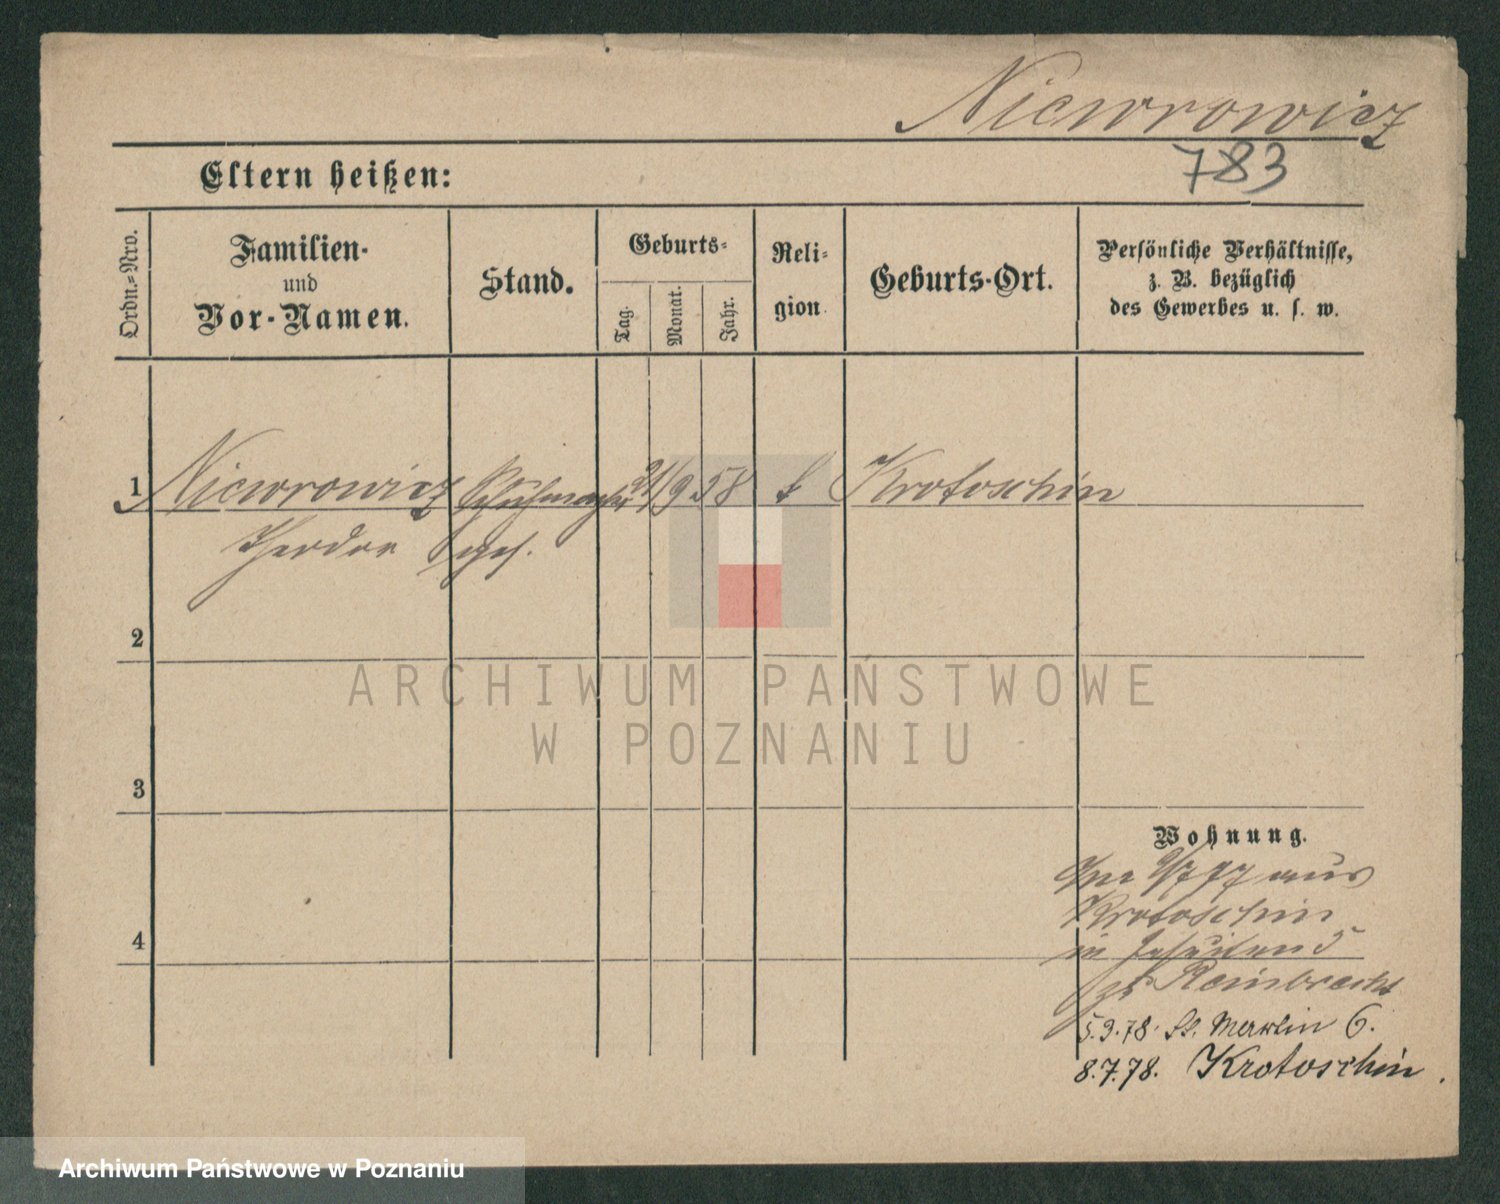 Niewrowicz
783
Eltern heißen:
Ordn.-Nro.
Familien-
und
Vor-Namen.
Stand.
Geburts-
Tag.
Monat.
Jahr.
Reli-
gion
Geburts-Ort.
Persönliche Verhältnisse,
z. B. bezüglich
des Gewerbes u. s. w.
1 Niewrowicz Schuhmacher 21 9 58 k Krotoschin
Theodor ges.
2
3
4
Wohnung.
aus
Krotoschin
in
zu
5.9.78. St. Martin 6.
8.7.78. Krotoschin
ARCHIWUM PAŃSTWOWE
W POZNANIU
Archiwum Państwowe w Poznaniu